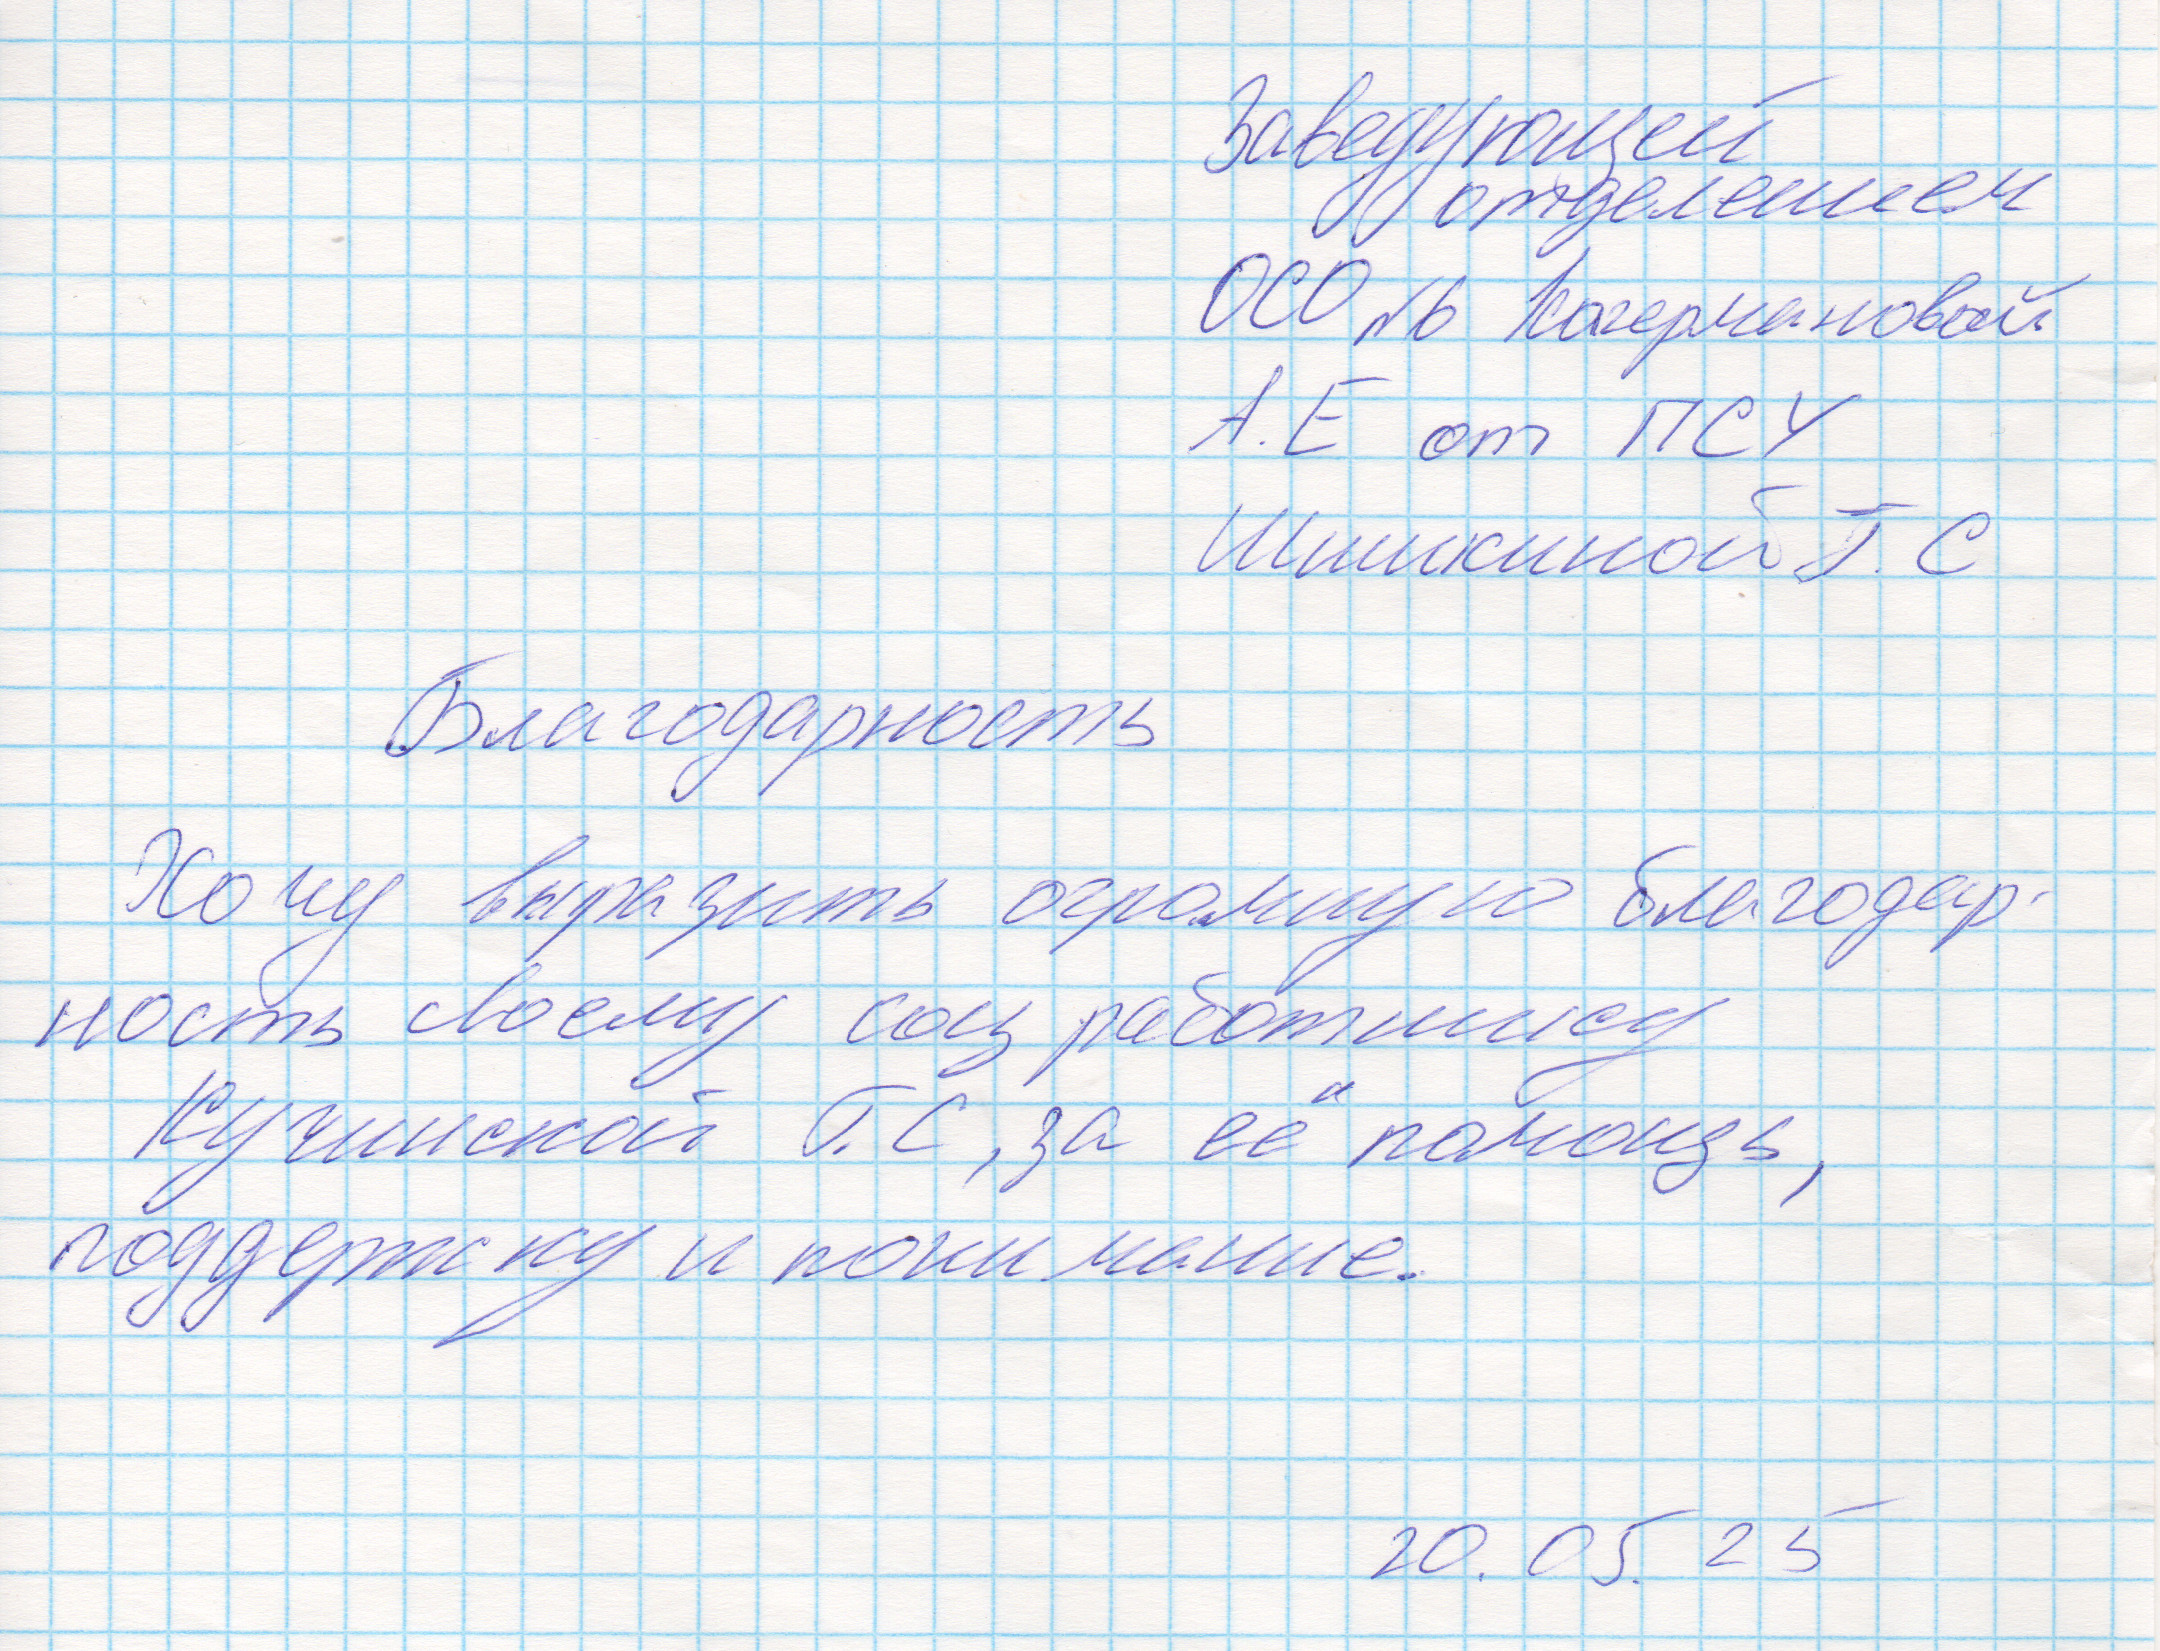 Заведующей
отделением
ОСО №6 Кагермановой
А.Е от ПСУ
Шишкиной Г.С
Благодарность
Хочу выразить огромную благодар-
ность своему соц работнику
Кучинской Г.С, за её помощь,
поддержку и понимание.
20.05.25